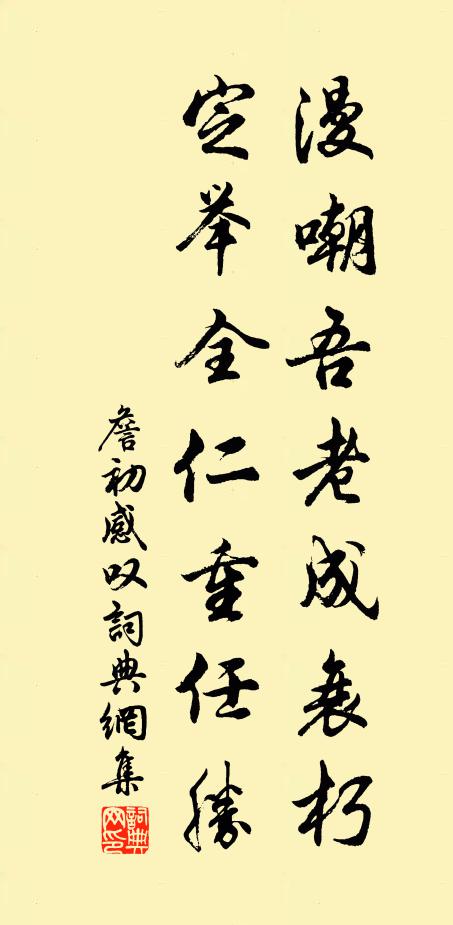 漫嘲吾老成衰朽
定举全仁重任勝
詹初感叹詞典網集
詞典网印